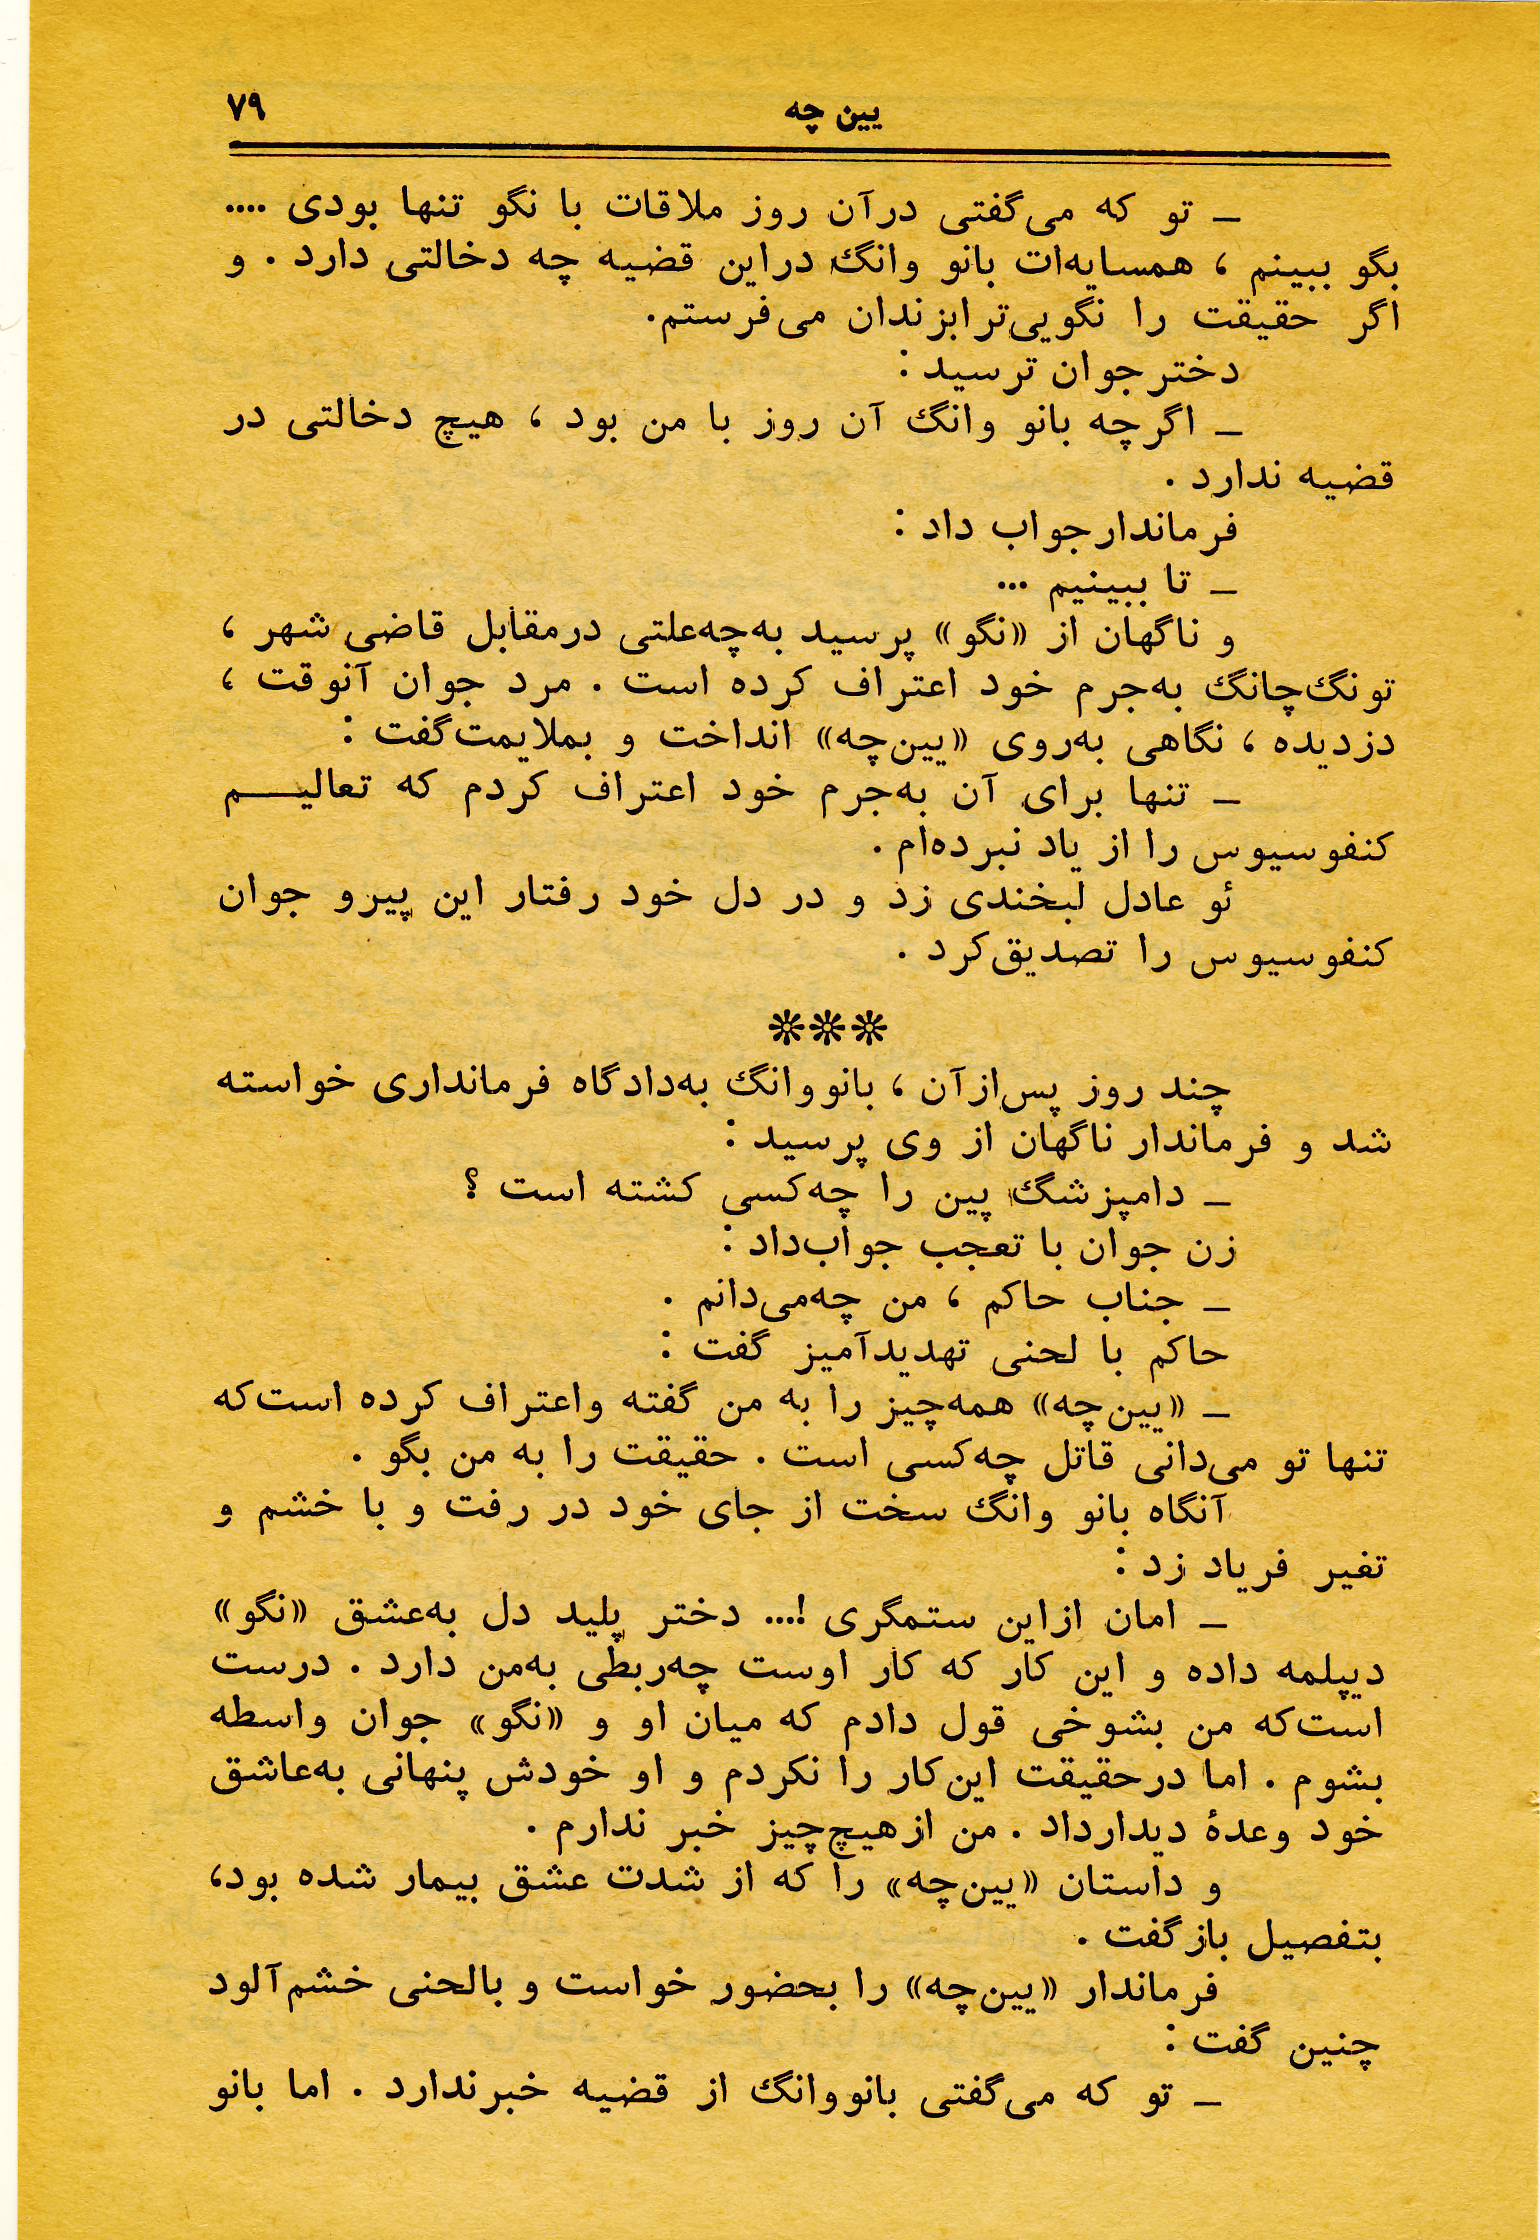 یین چه ۷۹
ـ تو که می‌گفتی درآن روز ملاقات با نگو تنها بودی ....
بگو ببینم ، همسایه‌ات بانو وانگ دراین قضیه چه دخالتی دارد . و
اگر حقیقت را نگویی‌ترابزندان می‌فرستم.
دختر جوان ترسید :
ـ اگرچه بانو وانگ آن روز با من بود ، هیچ دخالتی در
قضیه ندارد .
فرماندار جواب داد :
ـ تا ببینیم ...
و ناگهان از «نگو» پرسید به‌چه‌علتی درمقابل قاضی شهر ،
تونگ‌چانگ به‌جرم خود اعتراف کرده است . مرد جوان آنوقت ،
دزدیده ، نگاهی به‌روی «یین‌چه» انداخت و بملایمت‌گفت :
ـ تنها برای آن به‌جرم خود اعتراف کردم که تعالیـــم
کنفوسیوس را از یاد نبرده‌ام .
ئو عادل لبخندی زد و در دل خود رفتار این پیرو جوان
کنفوسیوس را تصدیق‌کرد .
***
چند روز پس‌ازآن ، بانووانگ به‌دادگاه فرمانداری خواسته
شد و فرماندار ناگهان از وی پرسید :
ـ دامپزشگ پین را چه‌کسی کشته است ؟
زن جوان با تعجب جواب‌داد :
ـ جناب حاکم ، من چه‌می‌دانم .
حاکم با لحنی تهدیدآمیز گفت :
ـ «یین‌چه» همه‌چیز را به من گفته واعتراف کرده است‌که
تنها تو می‌دانی قاتل چه‌کسی است . حقیقت را به من بگو .
آنگاه بانو وانگ سخت از جای خود در رفت و با خشم و
تغیر فریاد زد :
ـ امان ازاین ستمگری !... دختر پلید دل به‌عشق «نگو»
دیپلمه داده و این کار که کار اوست چه‌ربطی به‌من دارد . درست
است‌که من بشوخی قول دادم که میان او و «نگو» جوان واسطه
بشوم . اما درحقیقت این‌کار را نکردم و او خودش پنهانی به‌عاشق
خود وعدهٔ دیدارداد . من ازهیچ‌چیز خبر ندارم .
و داستان «یین‌چه» را که از شدت عشق بیمار شده بود،
بتفصیل بازگفت .
فرماندار «یین‌چه» را بحضور خواست و بالحنی خشم‌آلود
چنین گفت :
ـ تو که می‌گفتی بانووانگ از قضیه خبرندارد . اما بانو